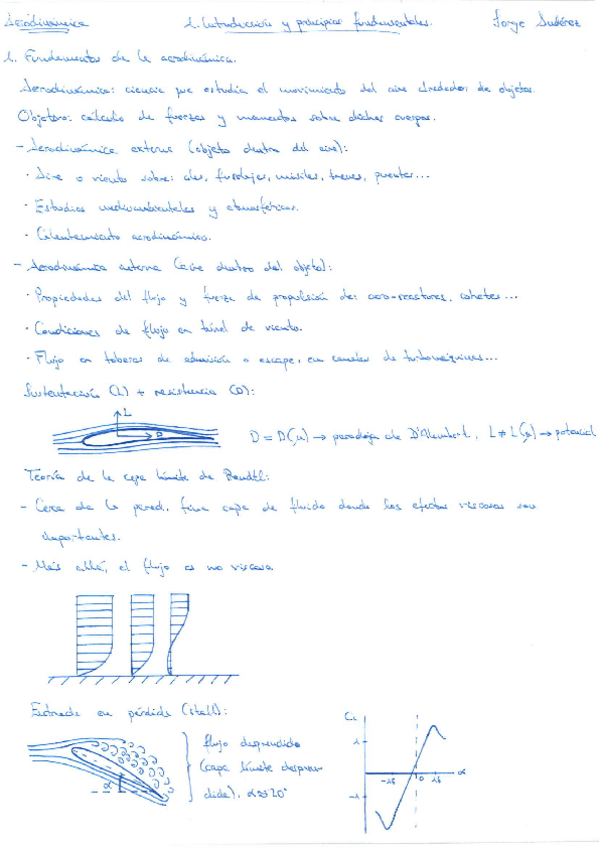 Aerodinámica 1. Introducción y principios fundamentales. Jorge Suárez
1. Fundamentos de la aerodinámica.
Aerodinámica: ciencia que estudia el movimiento del aire alrededor de objetos.
Objetivo: cálculo de fuerzas y momentos sobre dichos cuerpos.
- Aerodinámica externa (objeto dentro del aire):
· Aire o viento sobre: alas, fuselajes, misiles, trenes, puentes...
· Estudios medioambientales y atmosféricos.
· Calentamiento aerodinámico.
- Aerodinámica interna (aire dentro del objeto):
· Propiedades del flujo y fuerza de propulsión de: aero-reactores, cohetes...
· Condiciones de flujo en túnel de viento.
· Flujo en toberas de admisión o escape, en canales de turbomáquinas...
Sustentación (L) + resistencia (D):
L
D
D = D(μ) → paradoja de D'Alembert, L ≠ L(μ) → potencial
Teoría de la capa límite de Prandtl:
- Cerca de la pared, fina capa de fluido donde los efectos viscosos son
importantes.
- Más allá, el flujo es no viscoso
Entrada en pérdida (stall):
α
flujo desprendido
(capa límite despren-
dida). α≈20°
CL
1
-15 0 15 α
-1